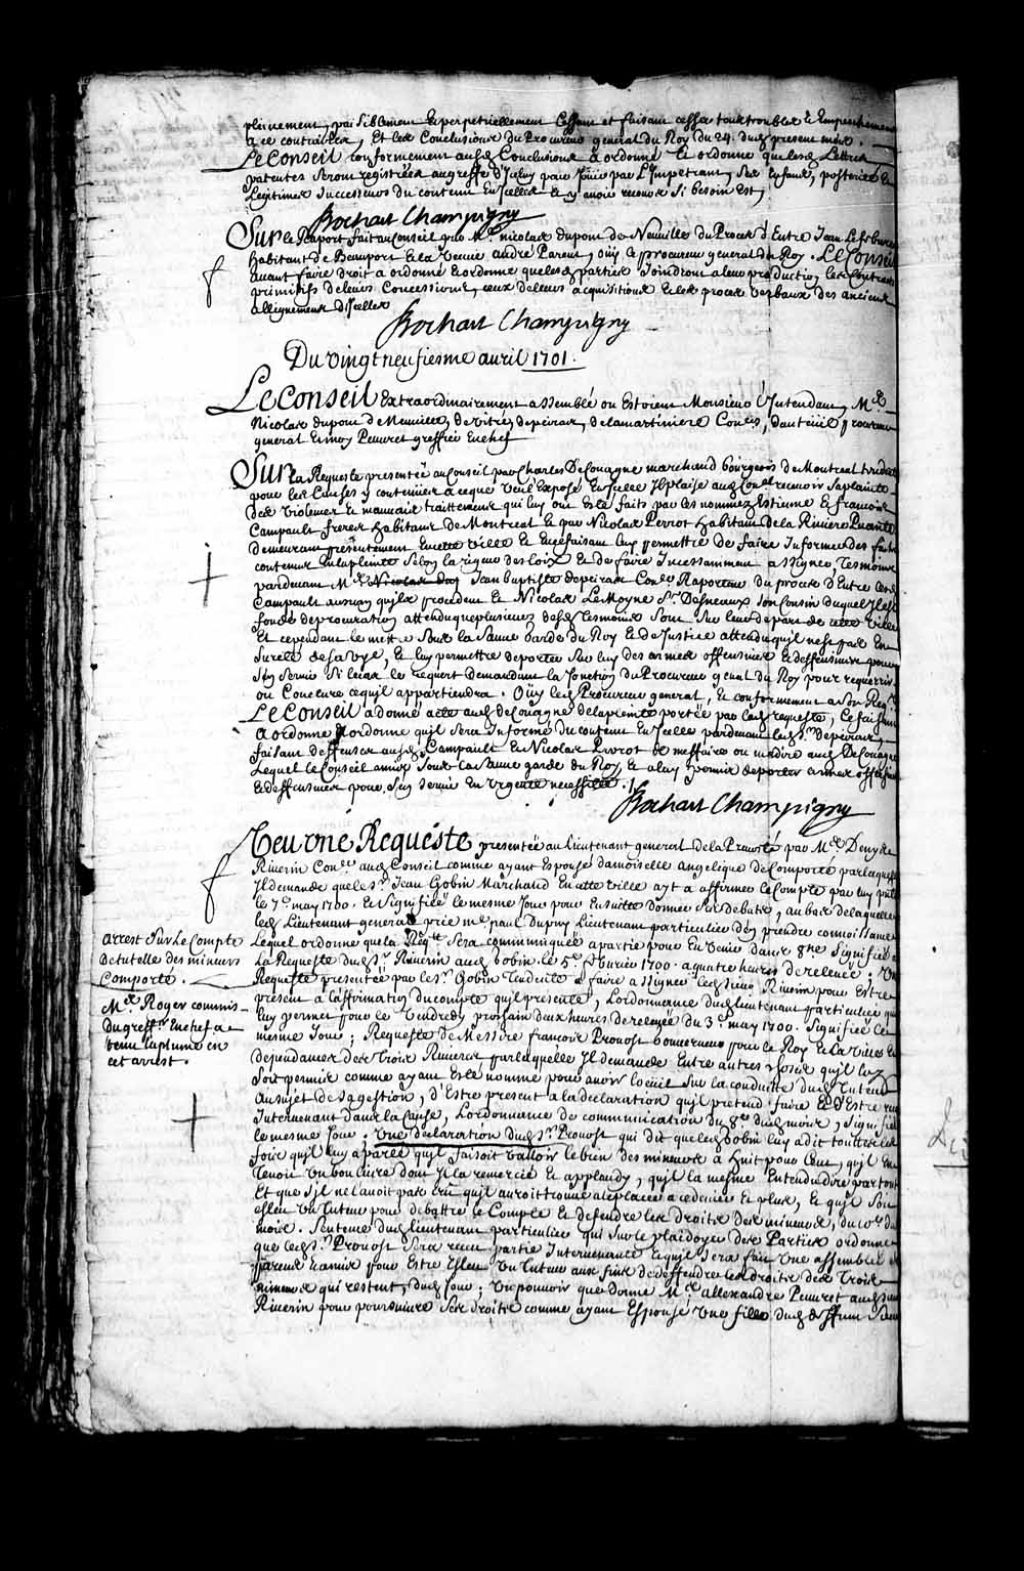 pleinement, paisiblement et perpetuellement Cessant et faisant cesser tous troubles et Empeschemens
a ce contraires, Et les Conclusions du Procureur general du Roy du 24. dud present mois.
Le Conseil conformement ausd Conclusions a ordonné et ordonne que lesd Lettres
patentes seront registrées au greffe d'Iceluy pour Joüir par l'Impetrant, ses Enfans, posterité et
Legitimes successeurs du contenu En Icelles et y avoir recours si besoin Est,
Bochart Champigny
Sur le Raport fait au Conseil par Me. nicolas dupont de Neuville du Proces d'Entre Jean Lefebvre
habitant de Beauport et la veuve andré Parent, ouy le procureur general du Roy. Le Conseil
avant faire droit a ordonné et ordonne que lesd parties Joindront a leur production les Contrats
primitifs de leurs Concessions, ceux de leurs acquisitions et les proces verbaux des anciens
allignemens d'Icelles
Bochart Champigny
Du vingt neufiesme avril 1701.
Le Conseil Extraordinairement assemblé ou Estoient Monsieur l'Intendant, Mes
Nicolas dupont de Neuville, de vitré, depeiras, de lamartiniere Coners, dauteüil procureur
general Et moy Peuvret greffier En chef
Sur la Requeste presentée au Conseil par Charles De Couagne marchand bourgeois de Montreal tendante
pour les Causes y contenües a ce que veu l'Exposé En Icelle Il plaise aud Conel recevoir sa plainte
des violences et mauvais traittemens qui luy ont Esté faits par les nommez Estienne et francois
Campault freres habitans de Montreal et par Nicolas Perrot habitant de la Riviere Puante
demeurant presentement En cette ville et Ence faisant luy permettre de faire Informer des faits
contenus En la plainte selon la rigueur des loix et de faire Incessamment assigner les tesmoins
pardevant Me. Nicolas dup Jean baptiste depeiras Coner Raporteur du proces d'Entre lesd
Campault au nom qu'ils procedent et Nicolas Le Moyne Sr. Dasneaux son Cousin duquel Il est
fondé de procuration attendu que plusieurs desd tesmoins sont sur leur depart de cette ville
Et cependant le mettre sous la sauve garde du Roy et de Justice attendu qu'il n'est pas En
sureté de sa vye, et luy permettre de porter sur luy des armes offensives et deffensives pour
s'En servir si le cas le requert demandant la Jonction du Procureur genal du Roy pour requerir
ou Conclure ce qu'il appartiendra. Oüy led Procureur general, Et conformement a son Reqre
Le Conseil a donné acte aud de Couagne de la plainte portée par lad requeste, Ce faisant
a ordonné et ordonne qu'il sera Informé du contenu En Icelle pardevant led Sr. depeiras
faisant deffenses ausd Campault et Nicolas Perrot de meffaire ou medire aud De Couagne
Lequel le Conseil a mis sous la sauve garde du Roy, et a luy permis de porter armes offensives
et deffensives pour s'En servir En Urgente necessité./.
Bochart Champigny
Veu Une Requeste presentée au Lieutenant general de la Prevosté par Me. Denys
Riverin Coner aud Conseil comme ayant Espousé damoiselle angelique de Comporté par laquelle
Il demande que le Sr. Jean Gobin Marchand En cette ville ayt a affirmer le Compte par luy
le 7e. may 1700. et signifié le mesme Jour pour En suitte donner ses debats, au bas de laquelle
led Lieutenant general prie me. paul Dupuy Lieutenant particulier d'En prendre connoissance
Lequel ordonne que la Reqte sera communiquée a partie pour En venir dans 8ne. signifiée
La Requeste dud Sr. Riverin aud Gobin le 5e. fevrier 1700. a quatre heures de relevée. Une
Requeste presentée par le Sr. Gobin tendante a faire assigner led Sieur Riverin pour Estre
present a l'affirmation du compte qu'il presente, L'ordonnance dud lieutenant particulier qui
luy permet pour le vendredy prochain deux heures de relevée du 3e. may 1700. signifiée le
mesme Jour; Requeste de Messire francois Prevost Gouverneur pour le Roy de la ville et
dependances des Trois Rivieres par laquelle Il demande Entre autres choses qu'il luy
soit permis comme ayant Esté nommé pour avoir l'oeüil sur la conduitte dud tuteur
au sujet de sa gestion, d'Estre present a la declaration qu'il pretend faire et d'Estre
Intervenant dans la Cause, L'ordonnance de communication du 8e. dud mois, signifiée
le mesme Jour; Une declaration dud Sr. Prevost qui dit que led Gobin luy a dit touttes les
fois qu'il luy a parlé qu'il faisoit valloir le bien des mineurs a huit pour Cent, qu'il En
tenoit Un bon livre dont Il l'a remercié et applaudy, qu'il l'a mesme Entendu dire par tout
Et que s'il ne l'avoit pas crû qu'il auroit trouvé a le placer a ce denier et plus, et qu'il soit
esleu Un tuteur pour debattre le Compte et defendre les droits des mineurs, du 10e du
mois. Sentence dud lieutenant particulier qui sur le plaidoyer des Parties ordonne
que led Sr. Prevost sera receu partie Intervenante et qu'il sera fait Une assemblée de
parens et amis pour Estre Esleu Un tuteur aux fins de deffendre les droits des trois
mineurs qui restent, dud Jour; Un pouvoir que donne Me. allexandre Peuvret aud Sieur
Riverin pour poursuivre ses droits comme ayant Espousé Une fille dud deffunt Sieur
arrest sur Le Compte
de tutelle des mineurs
Comporté.
Me. Roger commis
du greffr. En chef a
tenu la plume en
cet arrest.